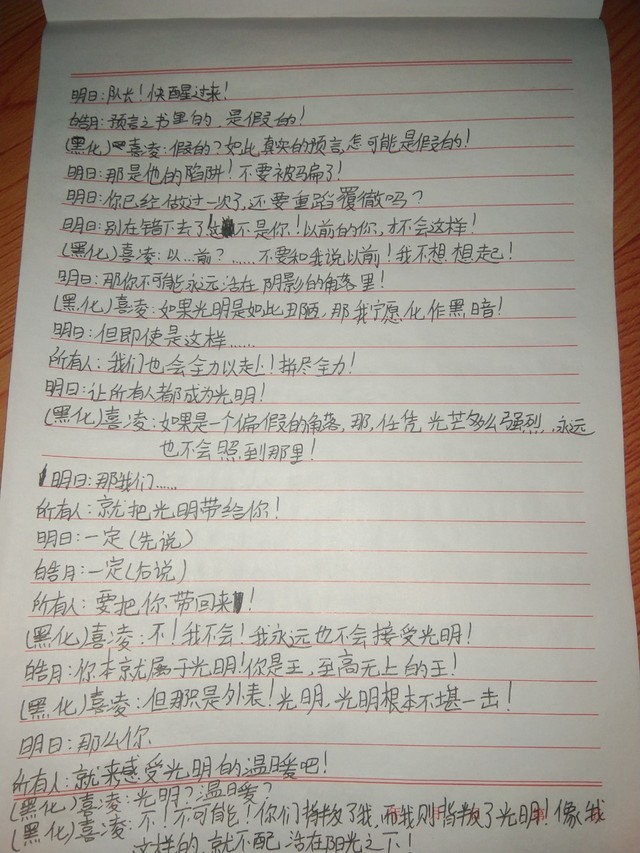 明日：队长！快醒过来！
皓月：预言之书里的，是假的！
(黑化)喜凌：假的？如此真实的预言，怎可能是假的！
明日：那是他的陷阱！不要被骗了！
明日：你已经做过一次了，还要重蹈覆徹吗？
明日：别在错下去了！这不是你！以前的你，才不会这样！
(黑化)喜凌：以…前？……不要和我说以前！我不想想起！
明日：那你不可能永远活在阴影的角落里！
(黑化)喜凌：如果光明是如此丑陋，那我宁愿化作黑暗！
明日：但即使是这样……
所有人：我们也会全力以赴！拼尽全力！
明日：让所有人都成为光明！
(黑化)喜凌：如果是一个偏假的角落，那，任凭光芒多么强烈，永远
也不会照到那里！
明日：那我们……
所有人：就把光明带给你！
明日：一定(先说)
皓月：一定(后说)
所有人：要把你带回来！
(黑化)喜凌：不！我不会！我永远也不会接受光明！
皓月：你本就属于光明！你是王，至高无上的王！
(黑化)喜凌：但那只是外表！光明，光明根本不堪一击！
明日：那么你
所有人：就来感受光明的温暖吧！
(黑化)喜凌：光明？温暖？
(黑化)喜凌：不！不可能！你们背叛了我，而我则背叛了光明！像我
这样的，就不配活在阳光之下！